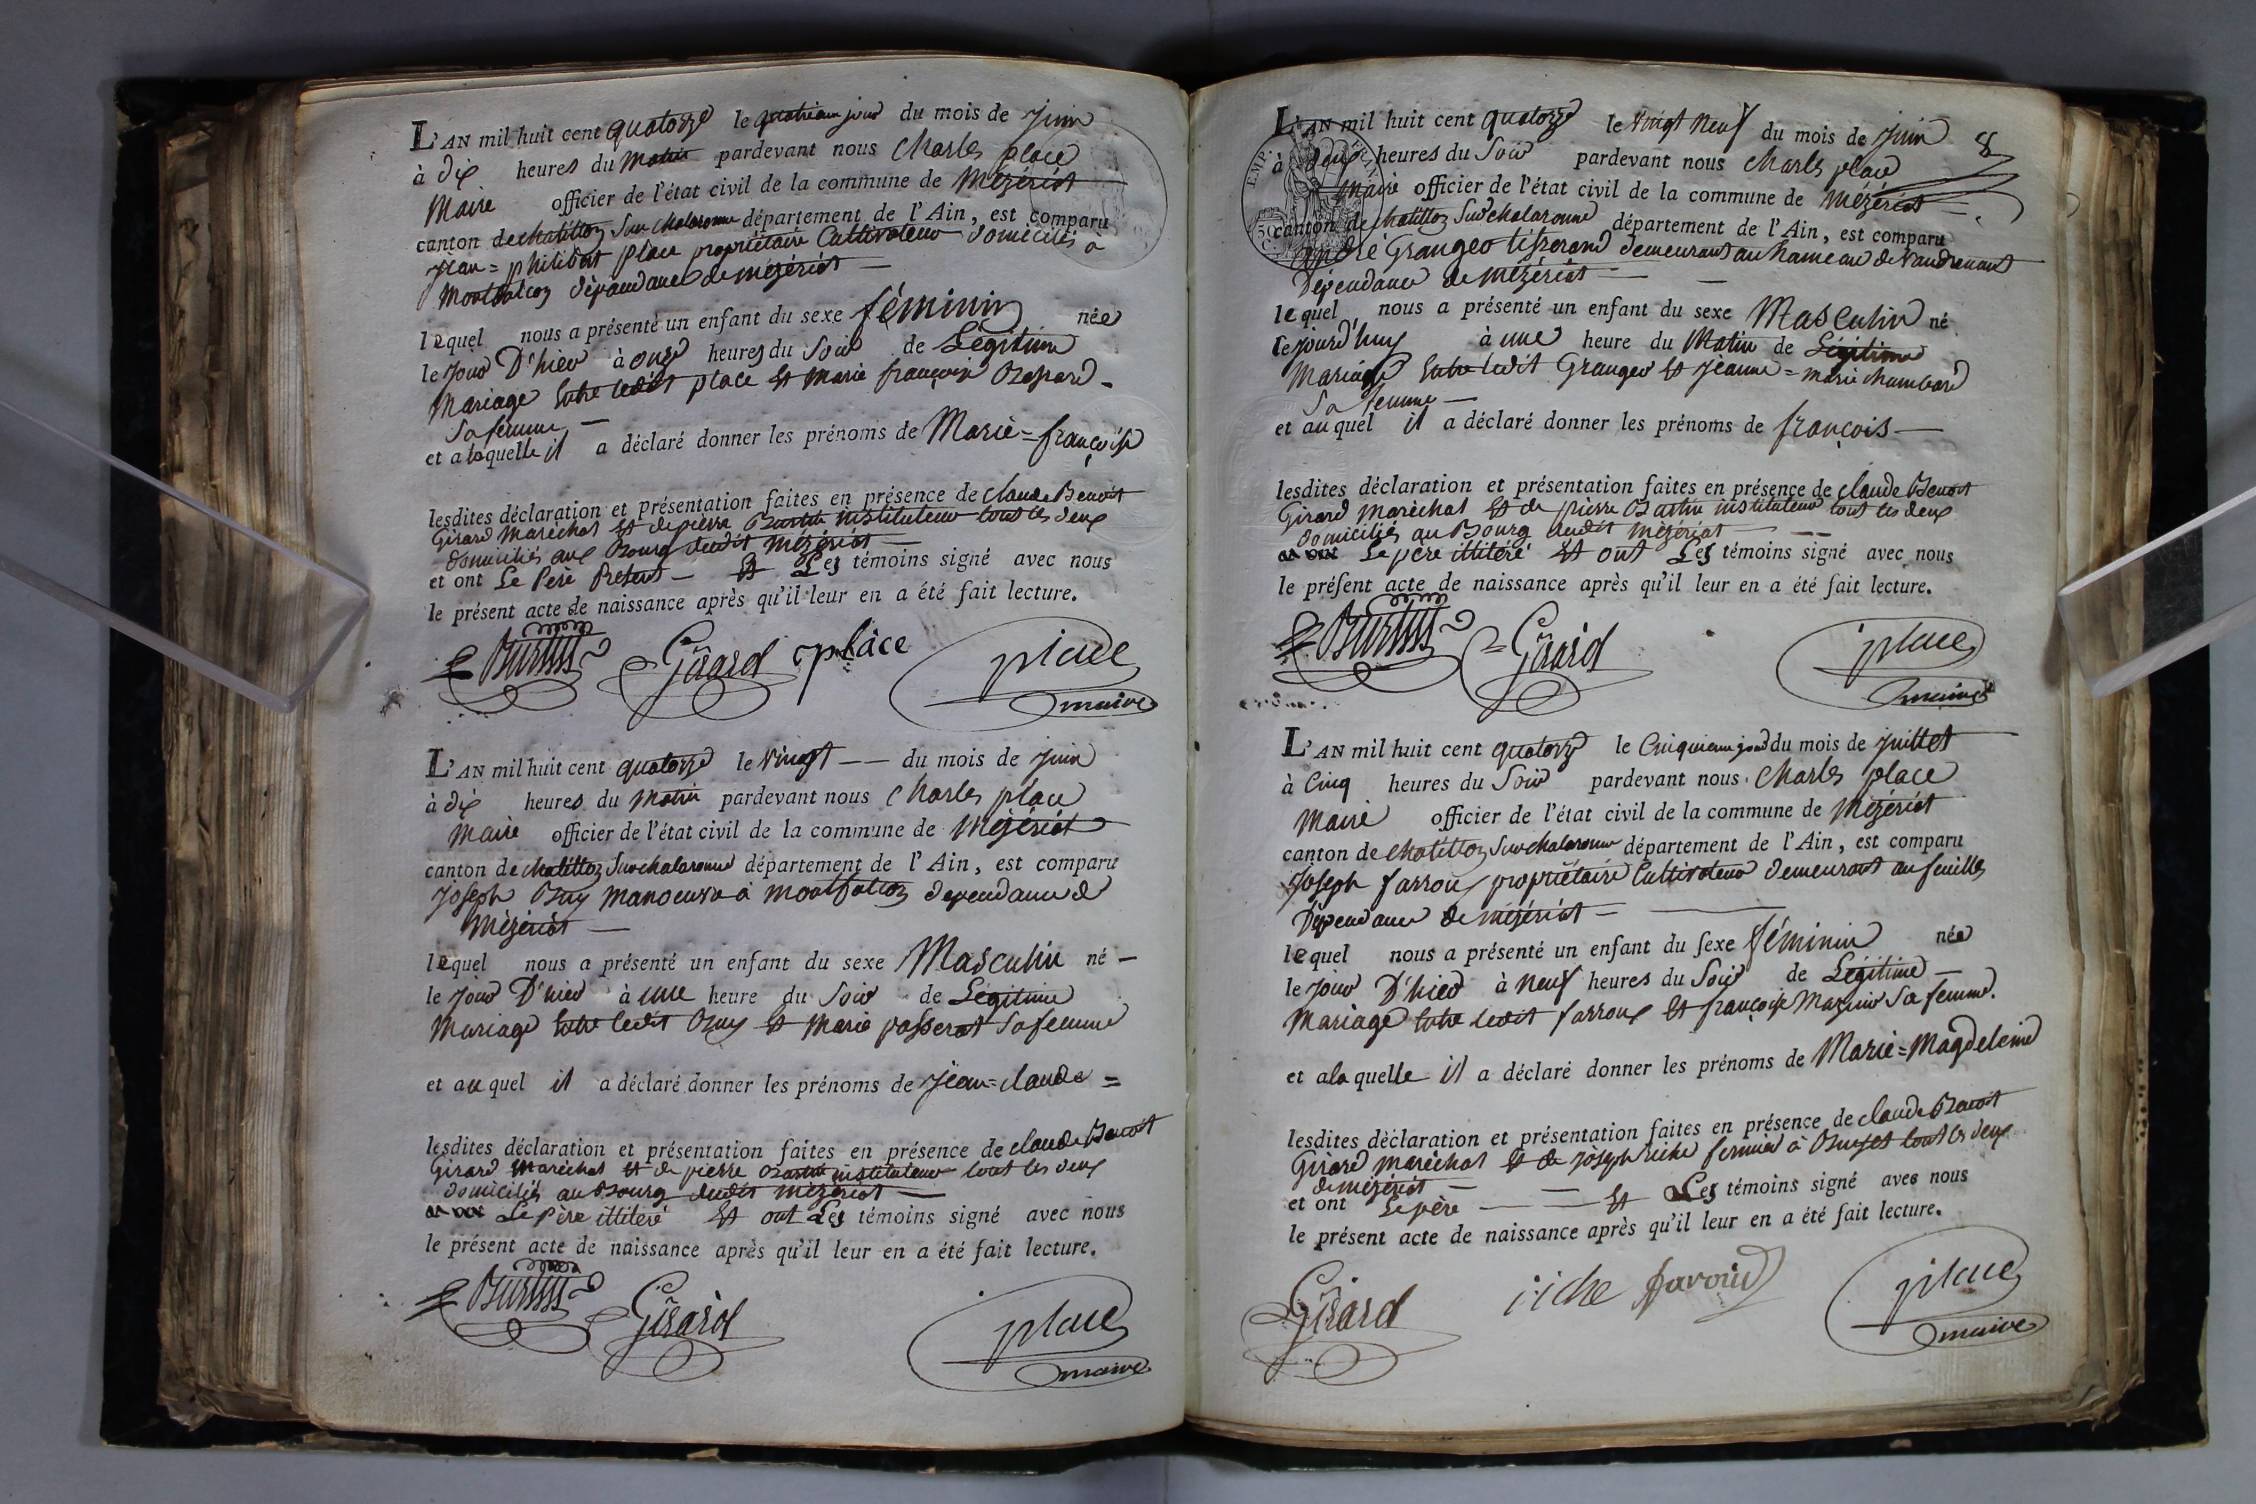 L'AN mil huit cent quatorze le quatrieme jour du mois de Juin
à dix heures du matin pardevant nous Charles place
Maire officier de l'état civil de la commune de Mézériat
canton de chatillon Sur chalaronne département de l'Ain, est comparu
Jean=philibert place propriétaire Cultivateur domicilié à
Montfalcon dépendance de mézériat —
lequel nous a présenté un enfant du sexe féminin née
le jour D'hier à onze heures du Soir de Légitime
Mariage Entre ledit place Et Marie françoise
Sa femme —
et a laquelle il a déclaré donner les prénoms de Marie=françoise
lesdites déclaration et présentation faites en présence de claude Benoit
Girard Maréchal Et de pierre Burtin instituteur tout les deux
domiciliés aux Bourg dudit mézériat —
et ont Le Père — Et Les témoins signé avec nous
le présent acte de naissance après qu'il leur en a été fait lecture.
Burtin Girard place place
maire
L'AN mil huit cent quatorze le vingt —— du mois de Juin
à dix heures du matin pardevant nous Charles place
Maire officier de l'état civil de la commune de Mézériat
canton de chatillon Sur chalaronne département de l'Ain, est comparu
Joseph Buy Manoeuvre à Montfalcon dependance de
Mézériat —
lequel nous a présenté un enfant du sexe Masculin né —
le jour D'hier à une heure du Soir de Légitime
Mariage Entre ledit Buy Et Marie passerat Sa femme
et au quel il a déclaré donner les prénoms de Jean=claude =
lesdites déclaration et présentation faites en présence de claude Benoit
Girard Maréchal Et de pierre Burtin instituteur tout les deux
domiciliés au Bourg dudit mézériat —
Le père illitéré Et ont Les témoins signé avec nous
le présent acte de naissance après qu'il leur en a été fait lecture.
Burtin Girard place
maire
8
L'AN mil huit cent quatorze le vingt neuf du mois de Juin
à deux heures du Soir pardevant nous Charles place
Maire officier de l'état civil de la commune de Mézériat
canton de chatillon Sur chalaronne département de l'Ain, est comparu
andré Granger tisserand demeurant au hameau de Vaudrenant
Dépendance de mézériat — —
lequel nous a présenté un enfant du sexe Masculin né
cejourd'huy à une heure du Matin de Légitime
Mariage Entre ledit Granger Et Jeanne=Marie chambard
Sa femme —
et au quel il a déclaré donner les prénoms de françois —
lesdites déclaration et présentation faites en présence de claude Benoit
Girard maréchal Et de pierre Burtin instituteur tout les deux
domiciliés au Bourg dudit mézériat —
Le père illitéré Et ont Les témoins signé avec nous
le présent acte de naissance après qu'il leur en a été fait lecture.
Burtin Girard place
maire
L'AN mil huit cent quatorze le Cinquieme jour du mois de Juillet
à Cinq heures du Soir pardevant nous Charles place
Maire officier de l'état civil de la commune de Mézériat
canton de chatillon Sur chalaronne département de l'Ain, est comparu
Joseph farroux propriétaire Cultivateur demeurant au feuilles
Dépendance de mézériat —
lequel nous a présenté un enfant du sexe féminin née
le jour D'hier à neuf heures du Soir de Légitime —
Mariage Entre ledit farroux Et françoise Mazuir Sa femme.
et a la quelle il a déclaré donner les prénoms de Marie=Magdeleine
lesdites déclaration et présentation faites en présence de claude Benoit
Girard maréchal Et de Joseph riche fermier à tout les deux
de mézériat — —
et ont Le père — — Et Les témoins signé avec nous
le présent acte de naissance après qu'il leur en a été fait lecture.
Girard riche place
maire